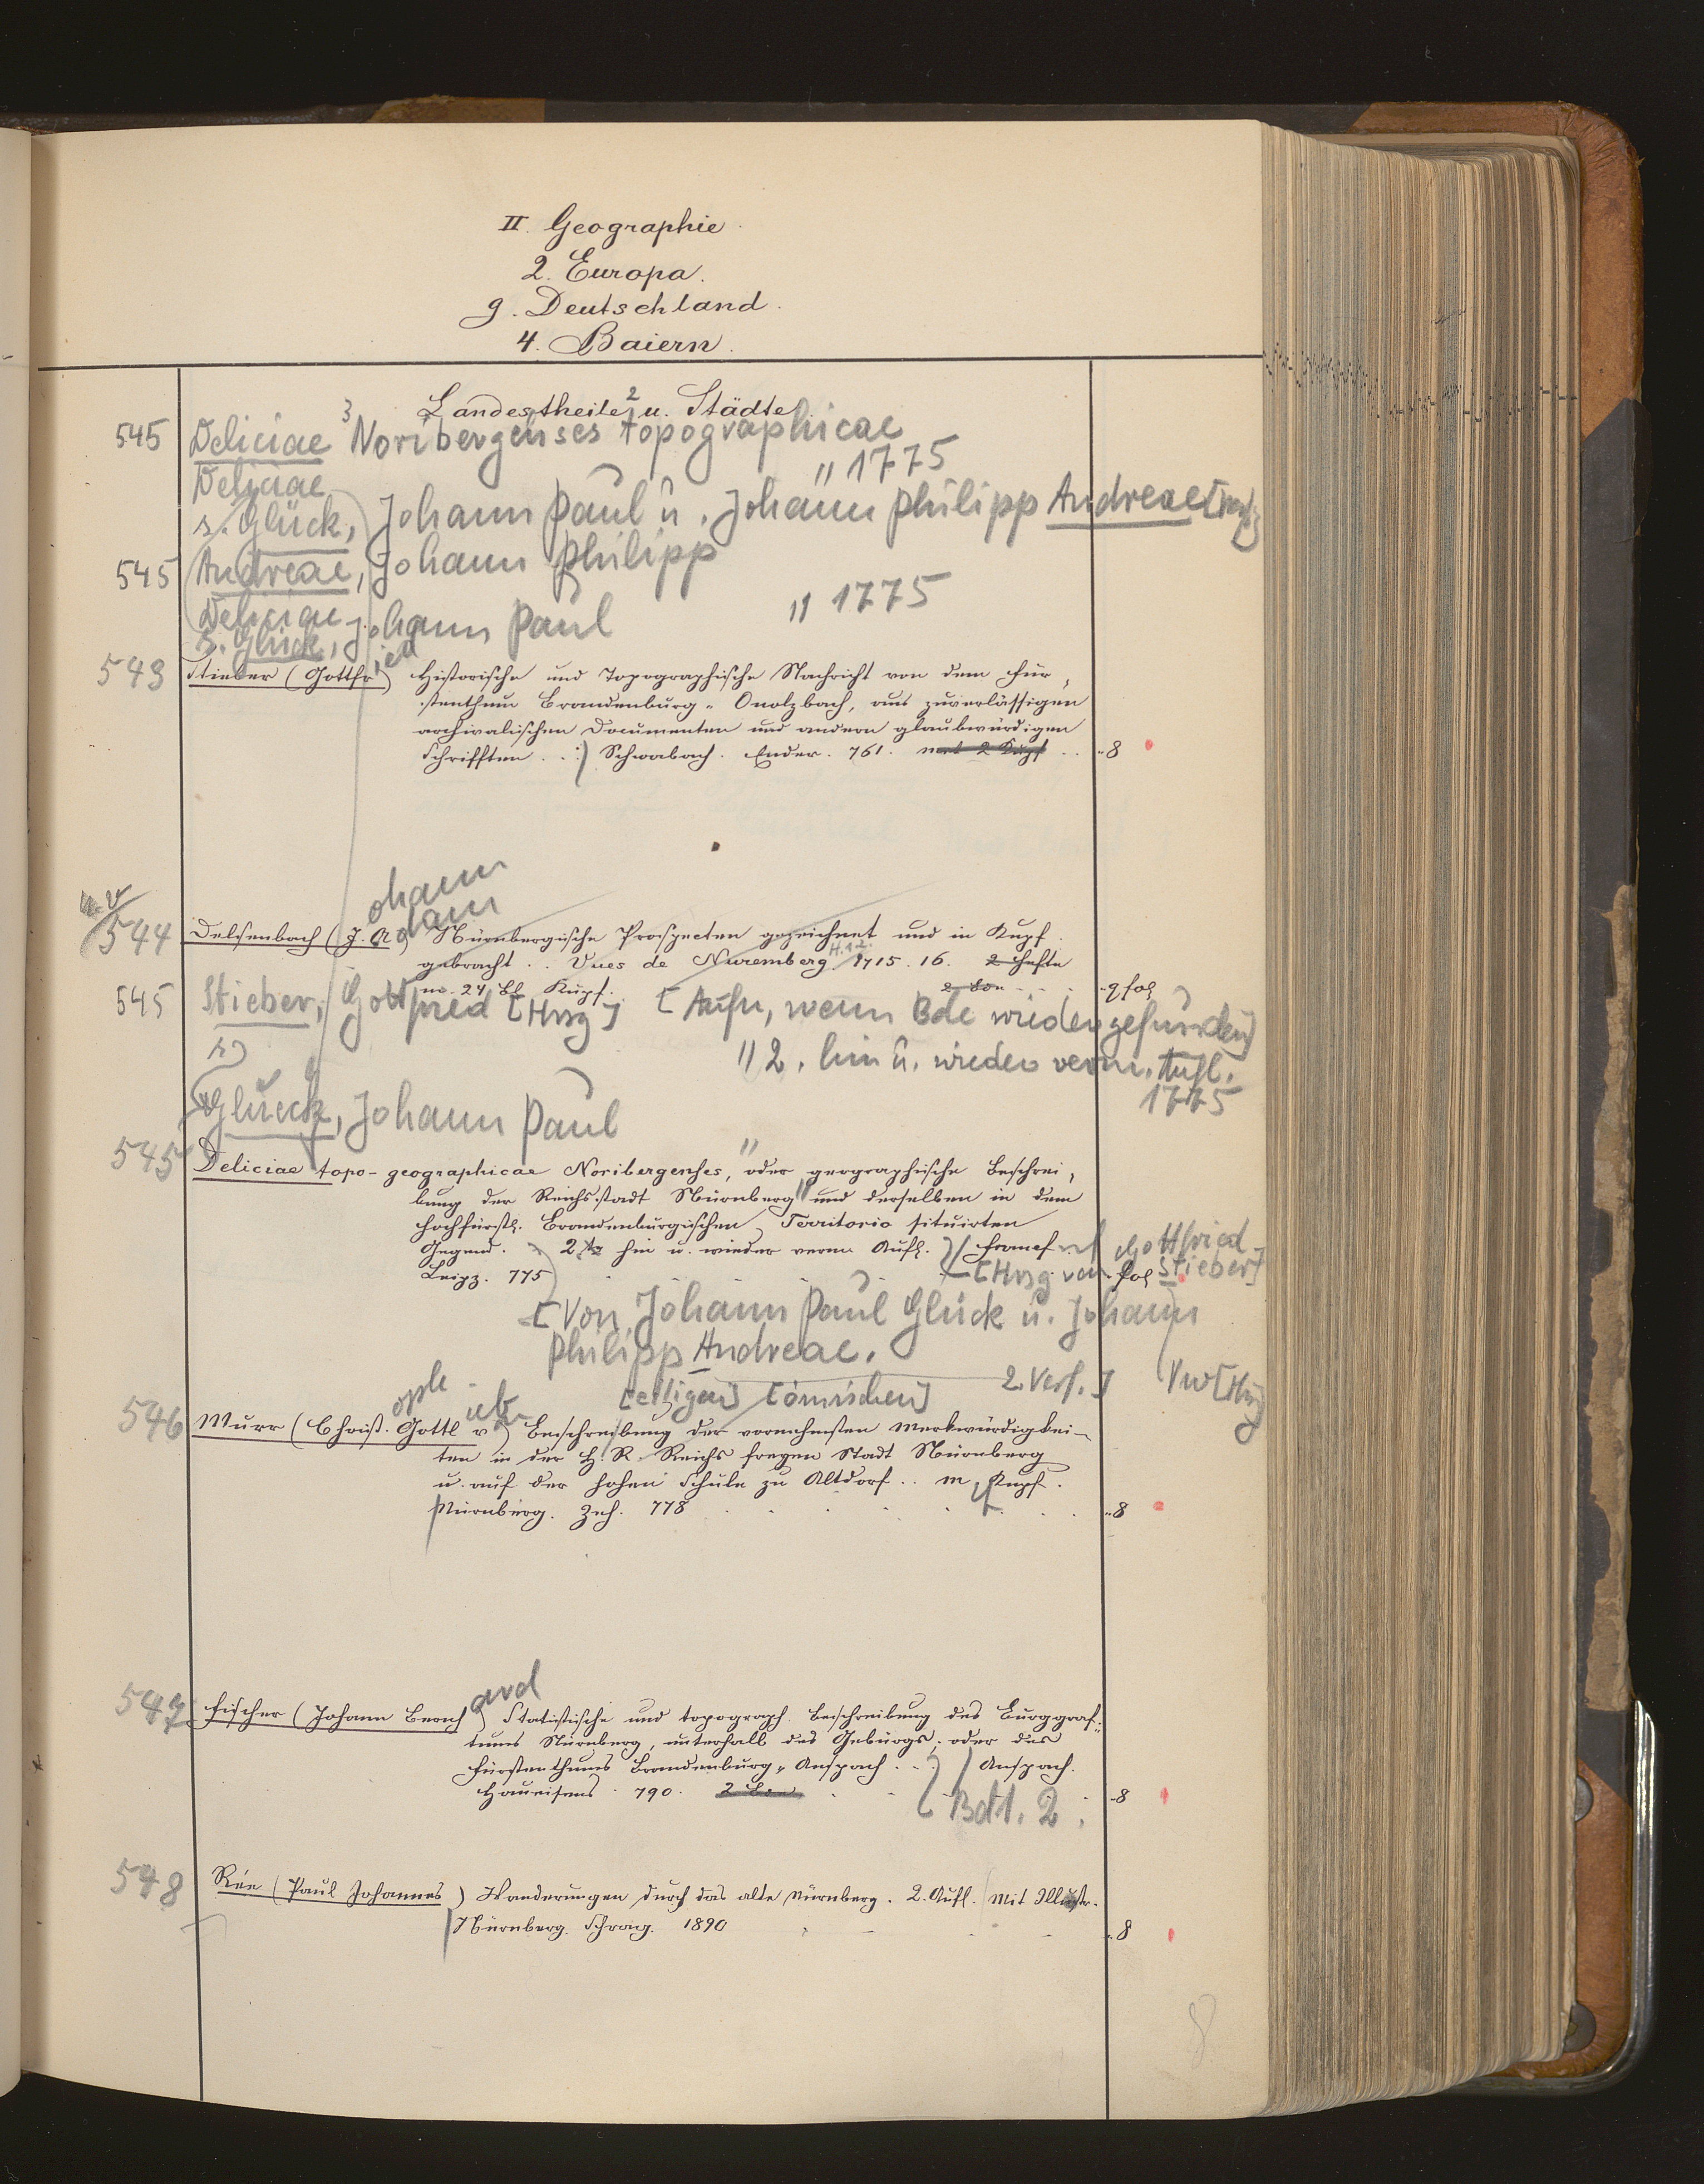 II. Geographie.
2. Europa.
g. Deutschland.
4. Baiern.
Landestheile u. Städte.
545 Deliciae 3 Noribergenses 2 topographicae
" 1775
Deliciae
s. Glück, Johann Paul u. Johann Philipp Andreae
545 Andreae, Johann Philipp
" 1775
Deliciae
s. Glück, Johann Paul
543 Stieber (Gottfried) Historische und Topographische Nachricht von dem Für-
stenthum Brandenburg-Onolzbach, aus zuverlässigen
archivalischen Documenten und andern glaubwürdigen
Schrifften . . Schwabach. Ender. 761. mit 2 Kupf . . " 8
544 Delsenbach (Johann Adam) Nürnbergische Prospecten gezeichnet und in Kupf.
gebracht . . Vues de Nuremberg. H.1.2. 1715. 16. 2 Hefte
m. 24 Bl Kupf. 2 Bde - - qfol
545 Stieber, Gottfried [Hrsg] [Aufn, wenn Bde wieder gefunden]
" 2. hin u. wieder verm. Aufl.
1775
Glueck, Johann Paul
545 Deliciae topo-geographicae Noribergenses, oder geographische Beschrei-
bung der Reichsstadt Nürnberg und derselben in dem
Hochfürstl. Brandenburgischen Territorio situirten
Gegend. 2te hin u. wieder verm Aufl. Francf
Leipz. 775 [Hrsg von Gottfried Stieber] fol
[Von Johann Paul Glück u. Johann
Philipp Andreae.
2. Verf.] Vw [Hrsg]
[eiligen] [ömischen]
546 Murr (Christoph Gottlieb v) Beschreibung der vornehmsten Merkwürdigkei-
ten in der H. R. Reichs freyen Stadt Nürnberg
u. auf der hohen Schule zu Altdorf . . m Kupf.
Nürnberg. Zeh. 778 " 8
547 Fischer (Johann Bernhard) Statistische und topograph. Beschreibung des Burggraf-
tums Nürnberg, unterhalb des Gebürgs; oder des
Fürstenthums Brandenburg-Anspach . . Anspach.
Haueisens 790. 2 Bde - 8
Bd 1. 2.
548 Rée (Paul Johannes) Wanderungen durch das alte Nürnberg. 2. Aufl. Mit Illustr.
Nürnberg. Schrag. 1890 " 8
8